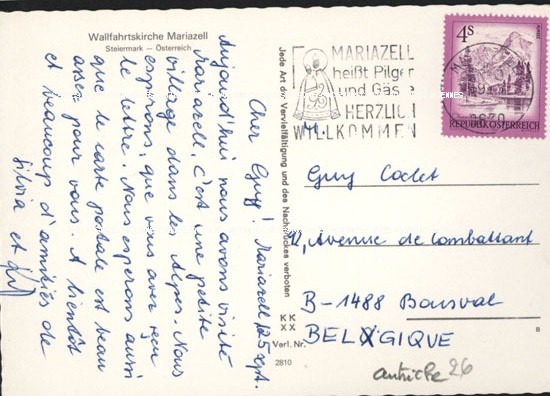 Wallfahrtskirche Mariazell
Steiermark — Österreich
Cher Guy! Mariazell, 25 sept.
Aujourd'hui nous avons visité
Mariazell. C'est une petite
village dans les Alpes. Nous
espérons, que vous avez reçu
le lettre. Nous espérons aussi
que le carte postale est beau
assez pour vous. A bientôt
et beaucoup d'amitiés de
Silvia et
Jede Art der Vervielfältigung und des Nachdruckes verboten
KK
XX
Verl. Nr.
2810
MARIAZELL
heißt Pilger
und Gäste
HERZLICH
WILLKOMMEN
4S
REPUBLIK ÖSTERREICH
8630
M.
Guy Coclet
92, Avenue de Combattant
B-1488 Bousval
BELGIQUE
B
autriche 26